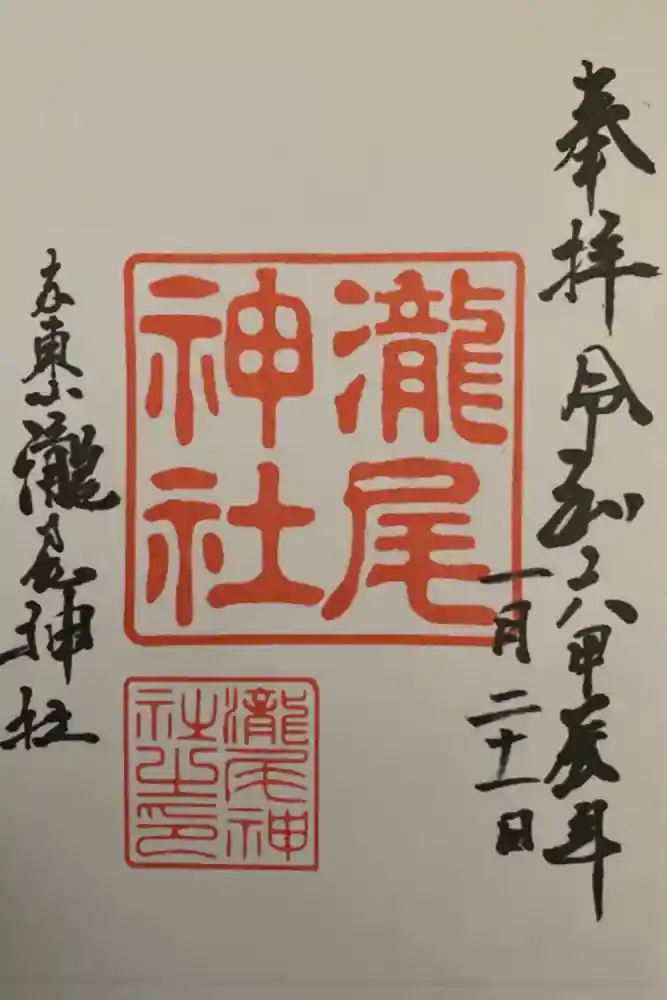 奉拝 令和六甲辰年
一月二十一日
瀧尾
神社
瀧尾神
社之印
京東山瀧尾神社